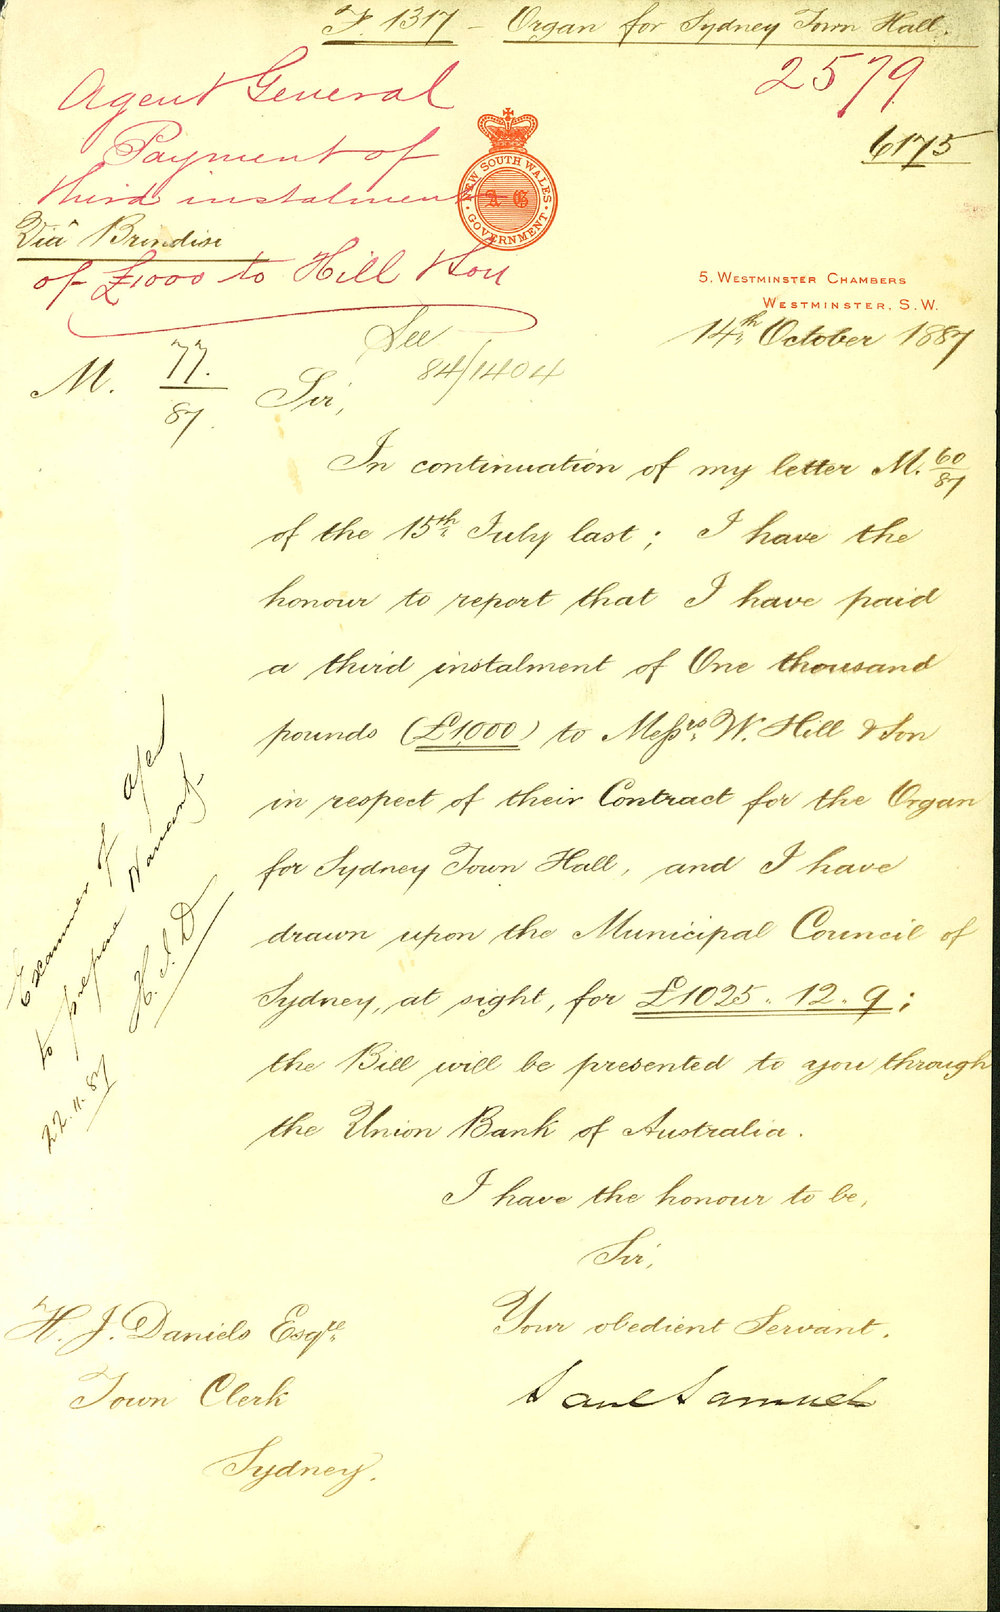 F. 1317 - Organ for Sydney Town Hall.
2579
6175
Agent General
Payment of
third instalment
Viâ Brindisi
of £1000 to Hill & Son
NEW SOUTH WALES
A G
GOVERNMENT
5, WESTMINSTER CHAMBERS
WESTMINSTER, S.W.
14th October 1887
See
84/1404
M. 77/87.
Sir,
In continuation of my letter M. 60/87
of the 15th July last; I have the
honour to report that I have paid
a third instalment of One thousand
pounds (£1,000) to Messrs. W. Hill & Son
in respect of their Contract for the Organ
for Sydney Town Hall, and I have
drawn upon the Municipal Council of
Sydney, at sight, for £1025. 12. 9;
the Bill will be presented to you through
the Union Bank of Australia.
I have the honour to be,
Sir,
Your obedient Servant.
Saul Samuel
H. J. Daniels Esqre
Town Clerk
Sydney.
Examiner of
to prepare
H.J.D
22.11.87